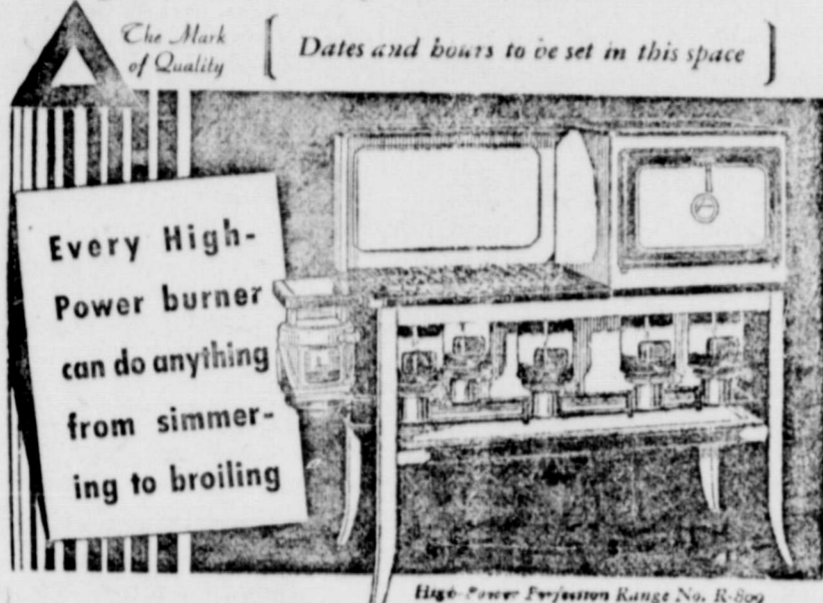 The Mark
of Quality
[ Dates and hours to be set in this space ]
Every High-
Power burner
can do anything
from simmer-
ing to broiling
High-Power Perfection Range No. R-809